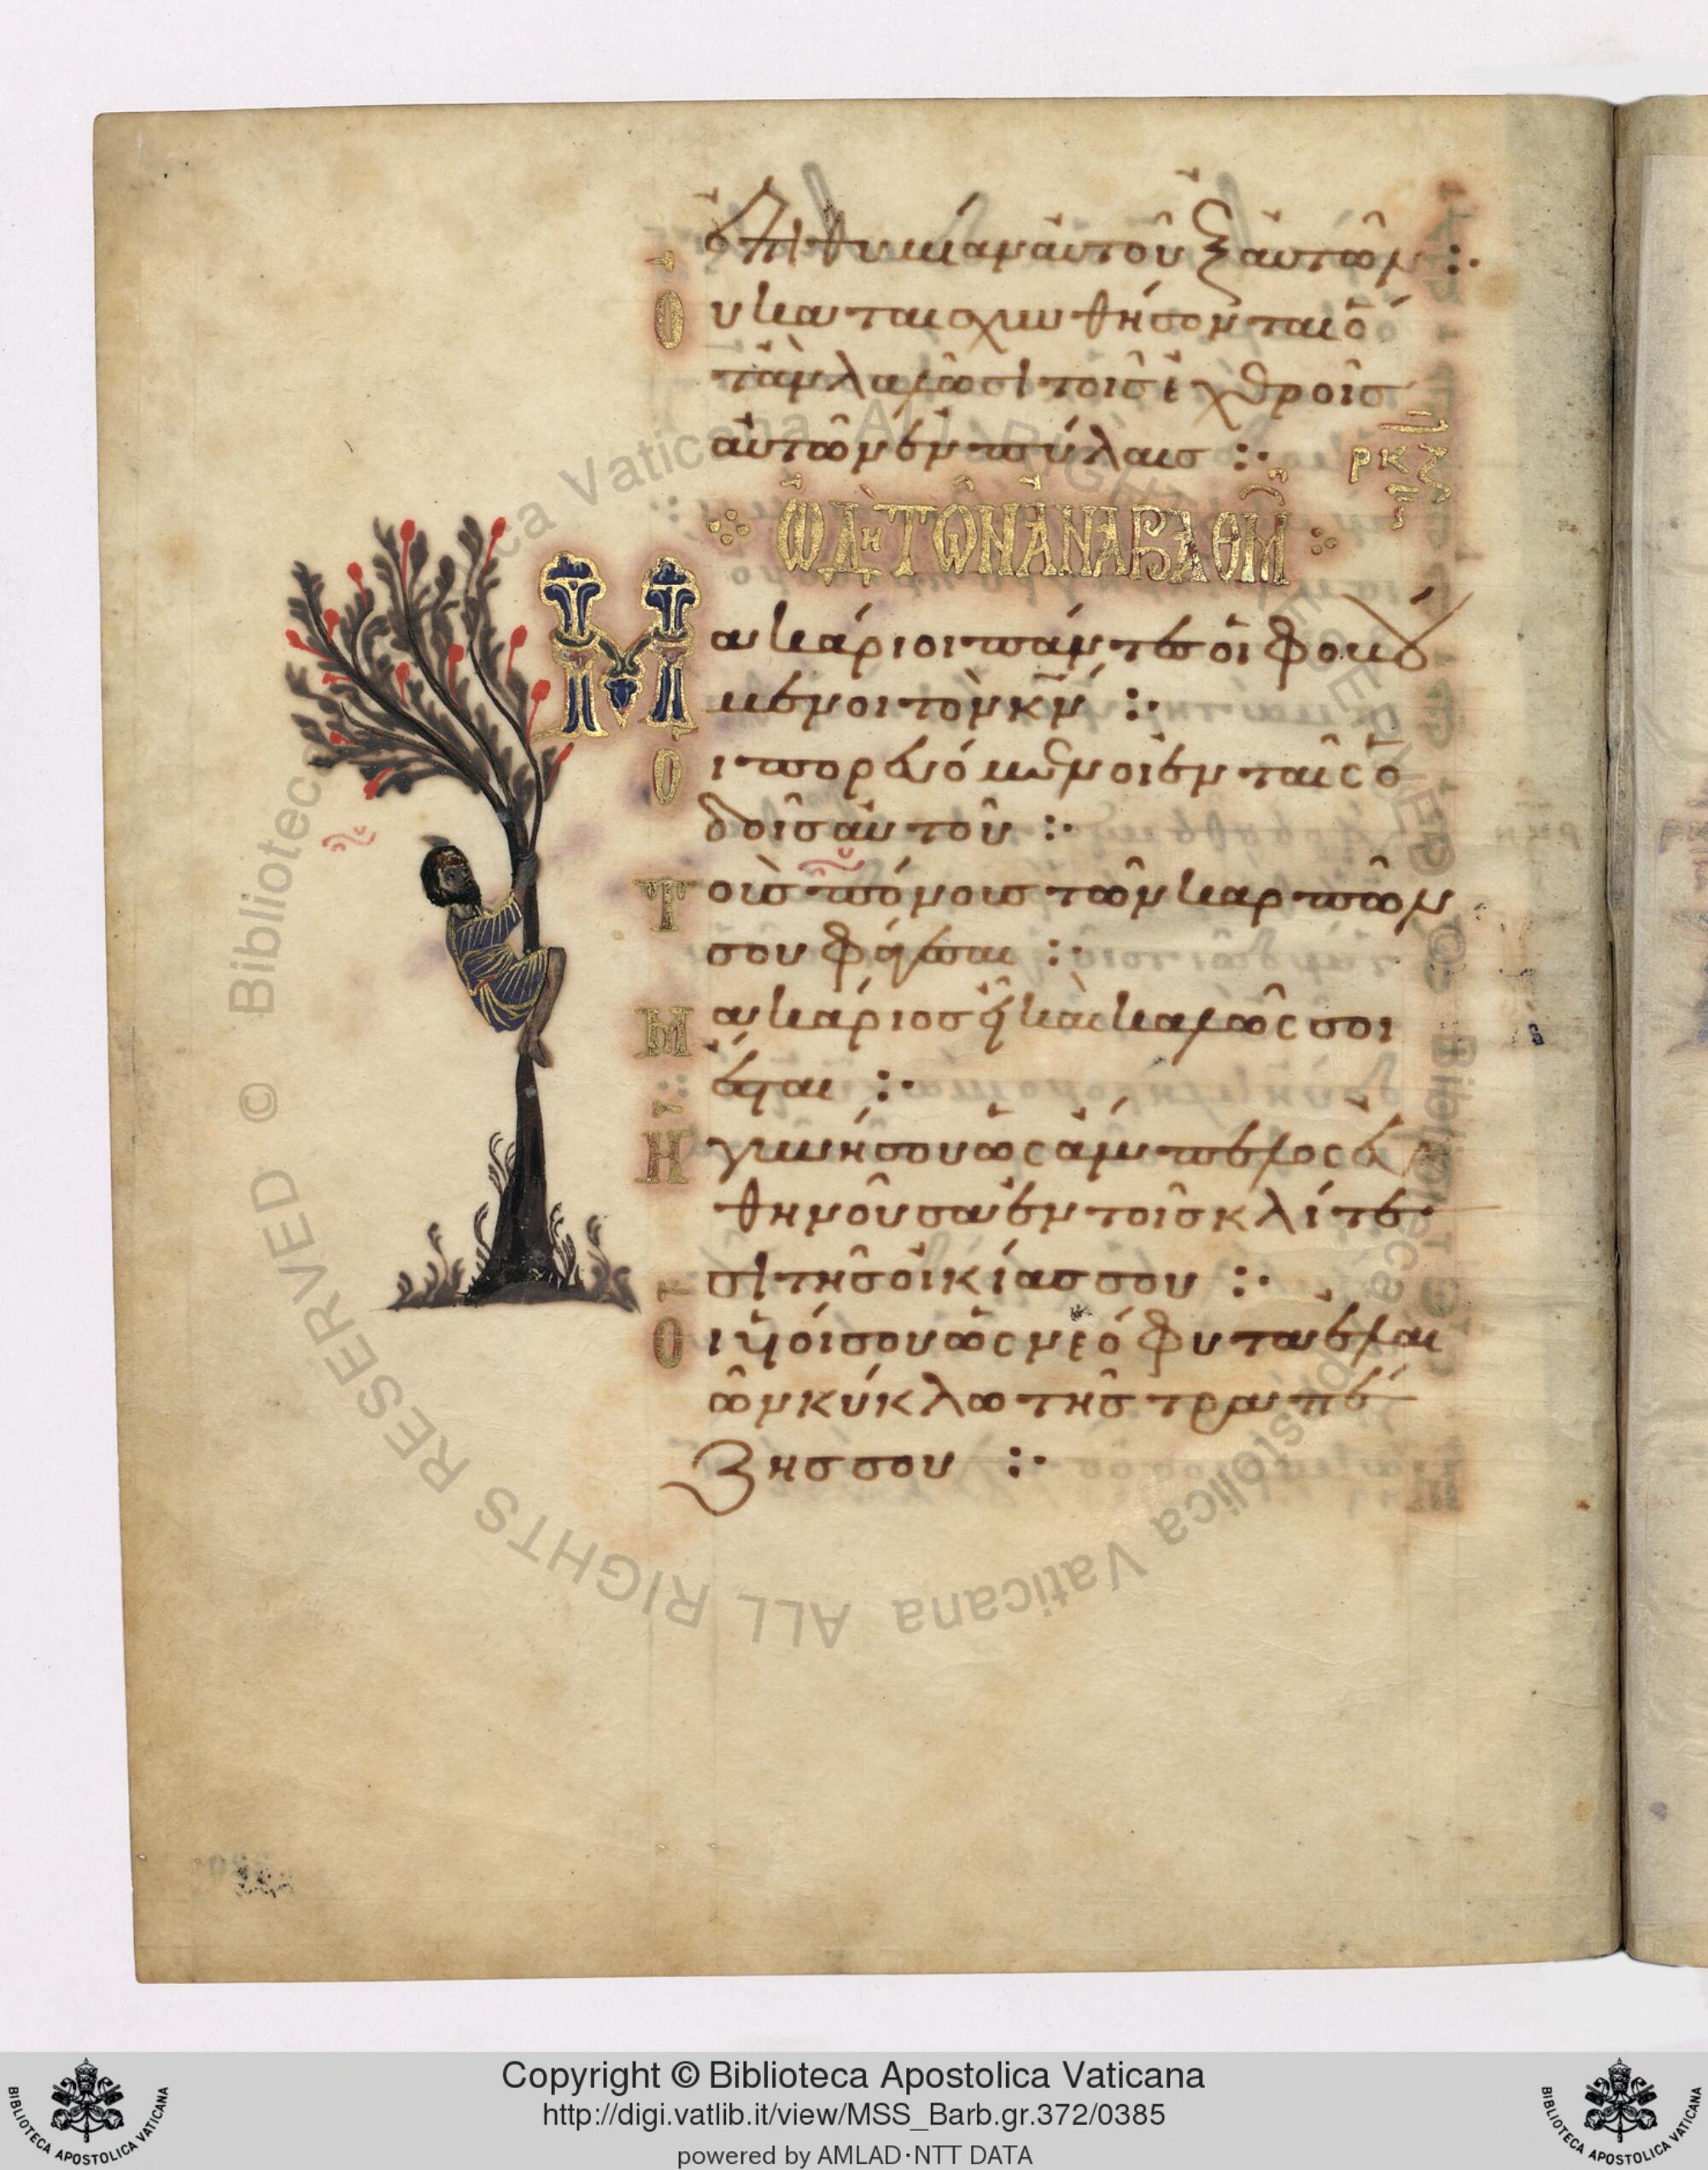 ἐπιθυμίαν αὐτοῦ ἐξ αὐτῶν :·
Οὐ καταισχυνθήσονται ὅ
τἂν λαλῶσι τοῖς ἐχθροῖς
αὐτῶν ἐν πύλαις :·
ρκζ
ᾨΔῊ ΤΩ͂Ν ἈΝΑΒΑΘΜ
Μακάριοι πάντες οἱ φοβού
μενοι τὸν κν :·
Οἱ πορευόμενοι ἐν ταῖς ὁ
δοῖς αὐτοῦ :·
Τοὺς πόνους τῶν καρπῶν
σου φάγεσαι :·
Μακάριος εἶ καὶ καλῶς σοι
ἔσται :·
Ἡ γυνή σου ὡς ἄμπελος εὐ
θηνοῦσα ἐν τοῖς κλίτε
σι τῆς οἰκίας σου :·
Οἱ υἱοί σου ὡς νεόφυτα ἐλαι
ῶν κύκλω τῆς τραπέ
ζης σου :·
© Biblioteca Apostolica Vaticana ALL RIGHTS RESERVED
Copyright © Biblioteca Apostolica Vaticana
http://digi.vatlib.it/view/MSS_Barb.gr.372/0385
powered by AMLAD·NTT DATA
BIBLIOTECA APOSTOLICA VATICANA
BIBLIOTECA APOSTOLICA VATICANA